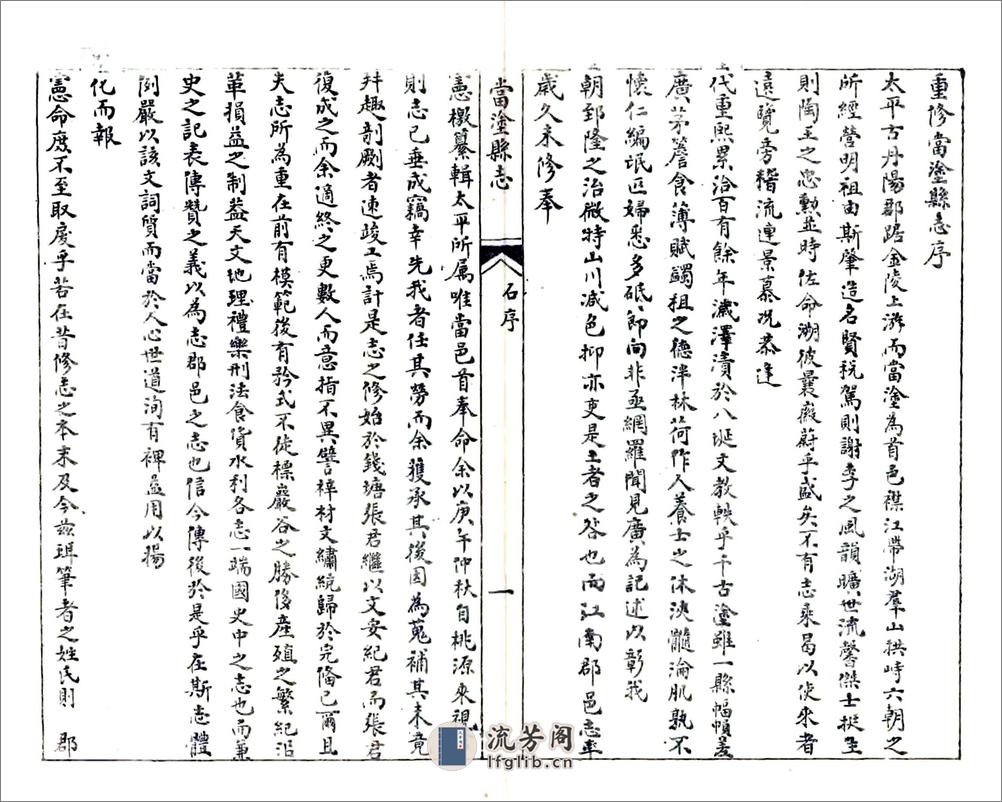 重修當塗縣志序
太平古丹陽郡踞金陵上游而當塗為首邑襟江帶湖羣山拱峙六朝之
所經營明祖由斯肇造名賢稅駕則謝李之風韻曠世流馨傑士挺生
則陶王之忠勳並時佐命溯彼曩徽蔚乎盛矣不有志乘曷以使來者
遠覽旁稽流連景慕况恭逢
代重熙累洽百有餘年濊澤漬於八埏文教軼乎千古塗雖一縣幅幀差
廣茅簷食薄賦蠲租之德泮林荷作人養士之休浹髓淪肌孰不
懷仁編氓匹婦悉多砥節向非亟網羅聞見廣為記述以彰我
朝郅隆之治微特山川減色抑亦吏是土者之咎也而江南郡邑志率
歲久未修奉
當塗縣志
石序
一
憲檄纂輯太平所属唯當邑首奉命余以庚午仲秋自桃源來視
則志已垂成竊幸先我者任其勞而余獲承其後因為蒐補其未竟
并趣剞劂者速竣工焉計是志之修始於錢塘張君繼以文安紀君而張君
復成之而余適終之更數人而意指不異譬梓材文繡統歸於完備已爾且
夫志所為重在前有模範後有矜式不徒標巖谷之勝侈產殖之繁紀沿
革損益之制益天文地理禮樂刑法食貨水利各志一端國史中之志也而兼
史之記表傳贊之義以為志郡邑之志也信今傳後於是乎在斯志體
例嚴以該文詞質而當於人心世道洵有裨益用以揚
化而報
憲命庶不至取戾乎若在昔修志之本末及今茲珥筆者之姓氏則 郡
流芳阁
lfglib.cn